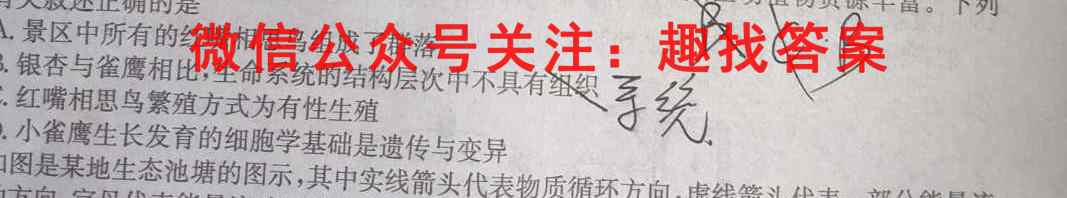 有关叙述正确的是
动植物资源丰富。下列
A. 景区中所有的红嘴相思鸟组成了群落
微信公众号关注：趣找答案
B. 银杏与雀鹰相比,生命系统的结构层次中不具有组织
系统
C. 红嘴相思鸟繁殖方式为有性生殖
D. 小雀鹰生长发育的细胞学基础是遗传与变异
如图是某地生态池塘的图示,其中实线箭头代表物质循环方向,虚线箭头代表